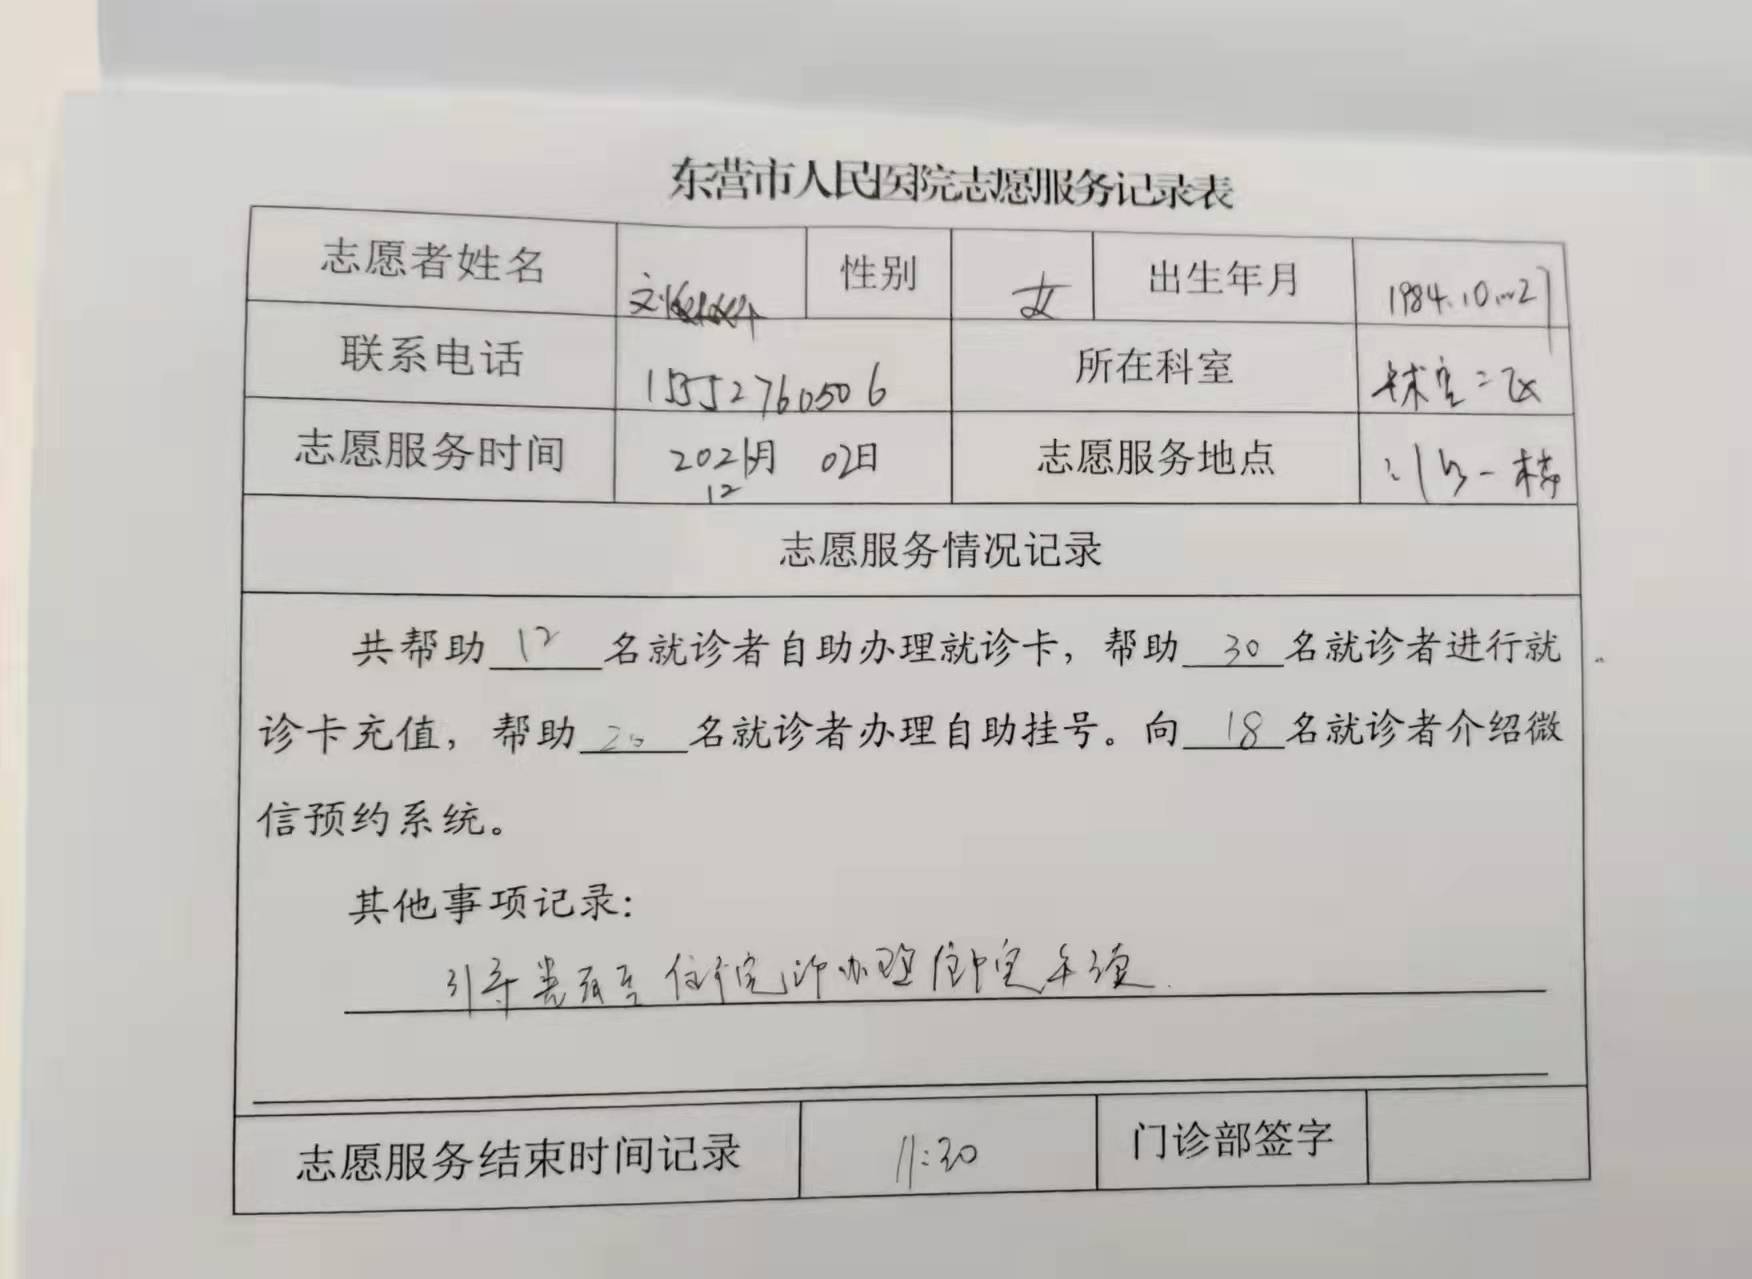 东营市人民医院志愿服务记录表
志愿者姓名 刘 性别 女 出生年月 1984.10.27
联系电话 15552760506 所在科室
志愿服务时间 2021 12月 02日 志愿服务地点 一楼
志愿服务情况记录
共帮助 12 名就诊者自助办理就诊卡，帮助 30 名就诊者进行就
诊卡充值，帮助 20 名就诊者办理自助挂号。向 18 名就诊者介绍微
信预约系统。
其他事项记录：
引导患者至住院部办理住院手续.
志愿服务结束时间记录 11:30 门诊部签字